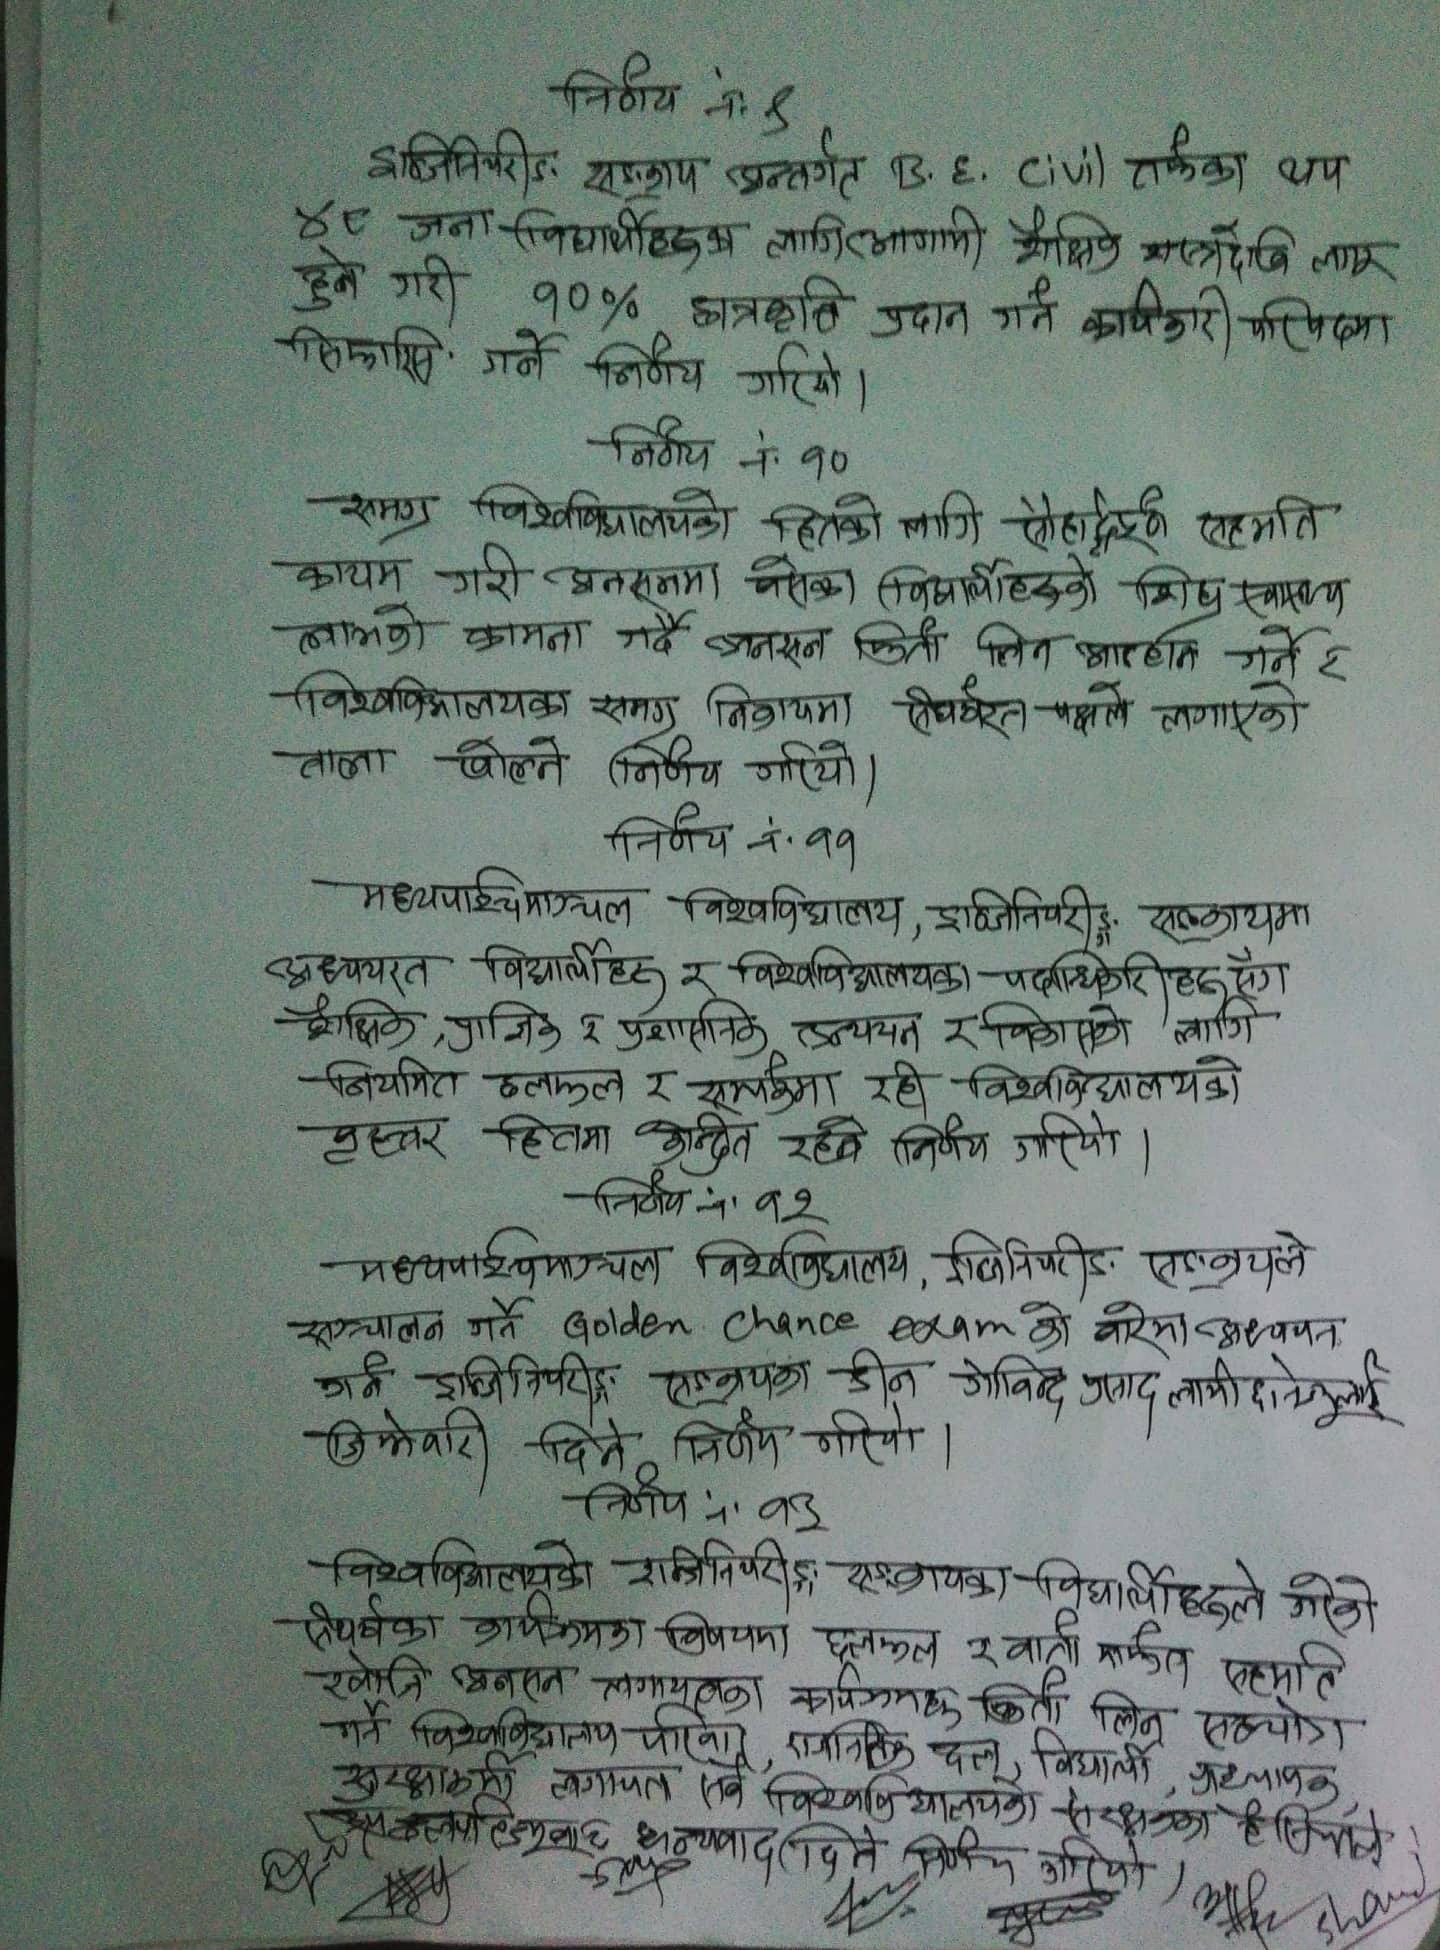 निर्णय नं. ९
इन्जिनियरीङ सङ्काय अन्तर्गत B.E. Civil तर्फका थप
४९ जना विद्यार्थीहरुका लागि आगामी शैक्षिक सत्रदेखि लागू
हुने गरी १०% छात्रवृत्ति प्रदान गर्न कार्यकारी परिषदमा
सिफारिस गर्ने निर्णय गरियो।
निर्णय नं. १०
समग्र विश्वविद्यालयको हितको लागि सौहार्द्रपूर्ण सहमति
कायम गरी अनसनमा बसेका विद्यार्थीहरुको शिघ्र स्वास्थ्य
लाभको कामना गर्दै अनसन फिर्ता लिन आह्वान गर्ने र
विश्वविद्यालयका समग्र निकायमा संघर्षरत पक्षले लगाएको
ताला खोल्ने निर्णय गरियो।
निर्णय नं. ११
मध्यपश्चिमाञ्चल विश्वविद्यालय, इन्जिनियरीङ्ग सङ्कायमा
अध्ययरत विद्यार्थीहरु र विश्वविद्यालयका पदाधिकारीहरु सँग
शैक्षिक, प्राज्ञिक र प्रशासनिक उन्नयन र विकासको लागि
नियमित छलफल र सम्पर्कमा रही विश्वविद्यालयको
वृहत्तर हितमा केन्द्रित रहने निर्णय गरियो।
निर्णय नं. १२
मध्यपश्चिमाञ्चल विश्वविद्यालय, इन्जिनियरीङ सङ्कायले
सञ्चालन गर्ने Golden Chance exam को बारेमा अध्ययन
गर्न इन्जिनियरीङ्ग सङ्कायका डीन गोविन्द प्रसाद लामीछानेज्यूलाई
जिम्मेवारी दिने निर्णय गरियो।
निर्णय नं. १३
विश्वविद्यालयको इन्जिनियरीङ्ग सङ्कायका विद्यार्थीहरुले गरेको
संघर्षका कार्यक्रमका विषयमा छलफल र वार्ता मार्फत सहमति
खोजि अनसन लगायतका कार्यक्रमहरु फिर्ता लिन सहयोग
गर्ने विश्वविद्यालय परिवार, राजनितिक दल, विद्यार्थी, प्राध्यापक,
सुरक्षाकर्मी लगायत सबै विश्वविद्यालयको संरक्षकका हैसियतले
धन्यवाद दिने निर्णय गरियो।